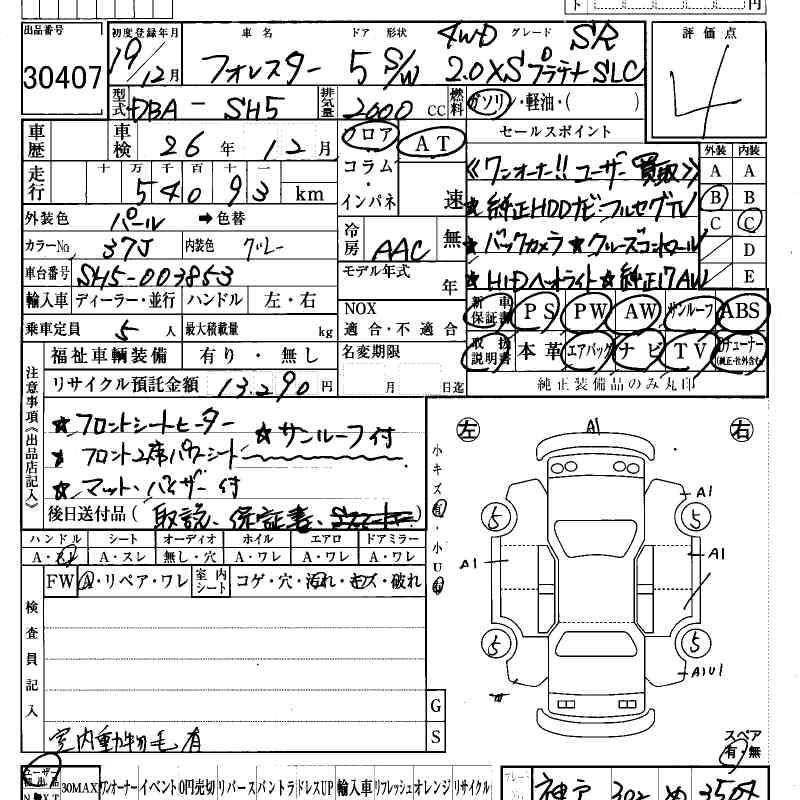 出品番号
30407
初度登録年月 車名 ドア 形状 グレード
19/12月 フォレスター 5 S/W 4WD SR
2.0XSプラチナSLC
評価点
4
型式 DBA-SH5 排気量 2000 CC 燃料 ガソリン・軽油・( )
車歴 車検 26年 12月 フロア AT セールスポイント
走行 十万千百十一
54093 km
コラム・インパネ 速
《ワンオーナー!! ユーザー買取》
★純正HDDナビフルセグTV
★バックカメラ★クルーズコントロール
★HIDヘッドライト★純正17AW
外装 内装
A A
B B
C C
D
E
外装色 パール ➡色替
カラーNo. 37J 内装色 グレー
冷房 AAC 無
車台番号 SH5-003853 モデル年式 年
輸入車 ディーラー・並行 ハンドル 左・右
NOX 適合・不適合
乗車定員 5人 最大積載量 kg
新車保証書 PS PW AW サンルーフ ABS
取扱説明書 本革 エアバッグ ナビ TV
(純正・社外含む)
純正装備品のみ丸印
福祉車輌装備 有り・無し 名変期限
リサイクル預託金額 13,290円 月 日迄
注意事項《出品店記入》
★フロントシートヒーター
★サンルーフ付
★フロント2席パワーシート
★マット、バイザー付
後日送付品( 取説、保証書、 )
ハンドル シート オーディオ ホイル エアロ ドアミラー
A・スレ A・スレ 無し・穴 A・ワレ A・ワレ A・ワレ
FW A・リペア・ワレ 室内シート コゲ・穴・汚れ・キズ・破れ
検査員記入
室内動物毛有
G
S
左 右
小キズ有・小U有
A1
A1
5 5
A1 A1
5 5
A1U1
スペア
有・無
ユーザー
30MAX ワンオーナー イベント 0円売切 リバース バントラ ドレスUP 輸入車 リフレッシュ オレンジ リサイクル
神戸 302